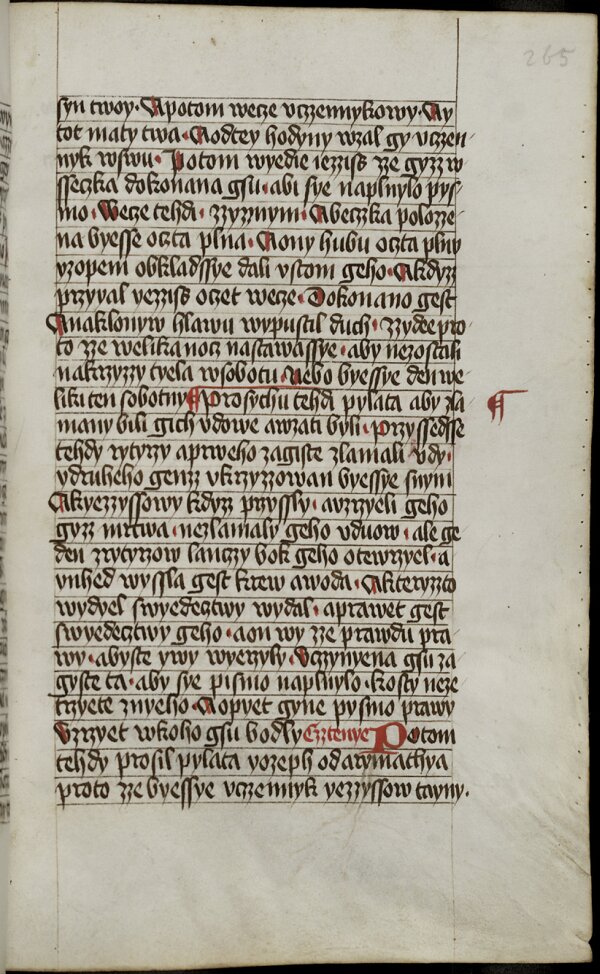 265
syn twoy · Apotom wecze vczennykowy · Ay
tot maty twa · Aodtey hodyny wzal gy vczen
nyk wswu · Potom wyedie iezziss ze gyzz w
sseczka dokonana gsu · abi sye naplnylo pys
mo · Wecze tehdi · zzyznym · Abeczka polozze
na byesse oczta plna · Aony hubu oczta plnu
yzopem obkladssye dali vstom geho · Akdyzz
przyyal yezziss oczet wecze · Dokonano gest
Anaklonyw hlawu wypustil duch · zzydee pro
to zze welika nocz nastawassye · aby nezostali
nakrzyzzy tyela wsobotu · Nebo byessye den we
liki ten sobotny ¶ Prosychu tehdi pylata aby zla
many bili gich vdowe awzati byli · Przyssedsse
tehdy rytyrzy aprweho zagiste zlamali vdy ·
ydruheho genzz vkrzyzowan byessye snym
Akyezzyssowy kdyzz przyssly · auzrzyeli geho
gyzz mrtwa · nezlamaly geho vduow · ale ge
den zrytyrzow lanczy bok geho otewrzyel · a
ynhed wyssla gest krew awoda · Akteryzto
wydyel swyedecztwy wydal · aprawet gest
swyedecztwy geho · aon wy ze prawdu pra
wy · abyste ywy wyerzyly · Vczynyena gsu za
gyste ta · aby sye pismo naplnylo · kosty neze
trzyete znyeho · Aopyet gyne pysmo prawy
Vzrzyet wkoho gsu bodly Cztenye Potom
tehdy prosil pylata yozeph od arymathya
proto zze byessye vczennyk yezzyssow tayny ·